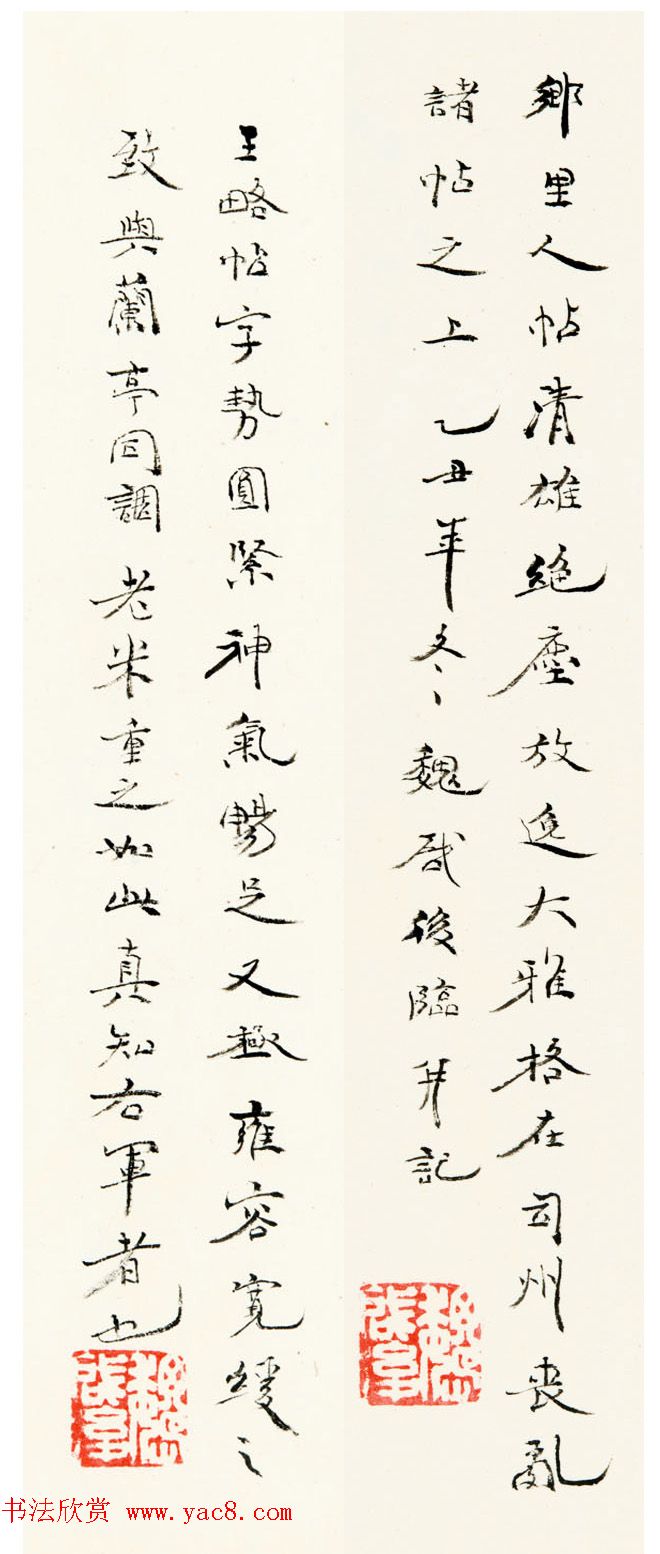 鄉里人帖清雄絶塵放逸大雅格在司州喪亂
諸帖之上乙丑年冬、魏啟後臨并記
王略帖字勢圓緊神氣暢足又極雍容寬緩之
致與蘭亭同調老米重之如此真知右軍者也
书法欣赏 www.yac8.com